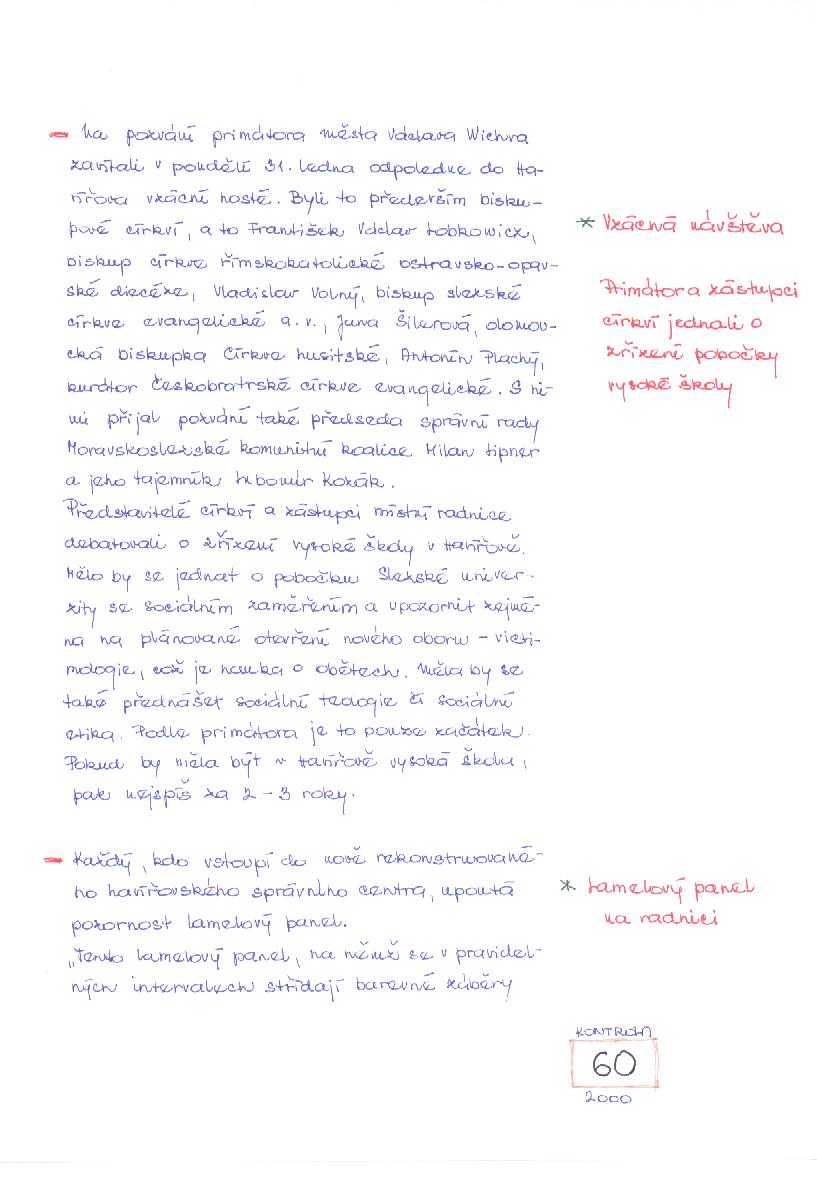 Na pozvání primátora města Václava Wichra
zavítali v pondělí 31. ledna odpoledne do Ha-
vířova vzácní hosté. Byli to především bisku-
pové církví, a to František Václav Lobkowicz,
biskup církve římskokatolické ostravsko-opav-
ské diecéze, Vladislav Volný, biskup slezské
církve evangelické a.v., Jana Šilerová, olomou-
cká biskupka Církve husitské, Antonín Plachý,
kurátor Českobratrské církve evangelické. S ni-
mi přijal pozvání také předseda správní rady
Moravskoslezské komunitní koalice Milan Lipner
a jeho tajemník Lubomír Kozák.
Představitelé církví a zástupci místní radnice
debatovali o zřízení vysoké školy v Havířově.
Mělo by se jednat o pobočku Slezské univer-
zity se sociálním zaměřením a upozornit zejmé-
na na plánované otevření nového oboru – victi-
mologie, což je nauka o obětech. Měla by se
také přednášet sociální teologie či sociální
etika. Podle primátora je to pouze začátek.
Pokud by měla být v Havířově vysoká škola,
pak nejspíš za 2 – 3 roky.
* Vzácná návštěva
Primátor a zástupci
církví jednali o
zřízení pobočky
vysoké školy
– Každý, kdo vstoupí do nově rekonstruované-
ho havířovského správního centra, upoutá
pozornost lamelový panel.
„Tento lamelový panel, na němž se v pravidel-
ných intervalech střídají barevné záběry
* Lamelový panel
na radnici
KONTROLA
60
2000